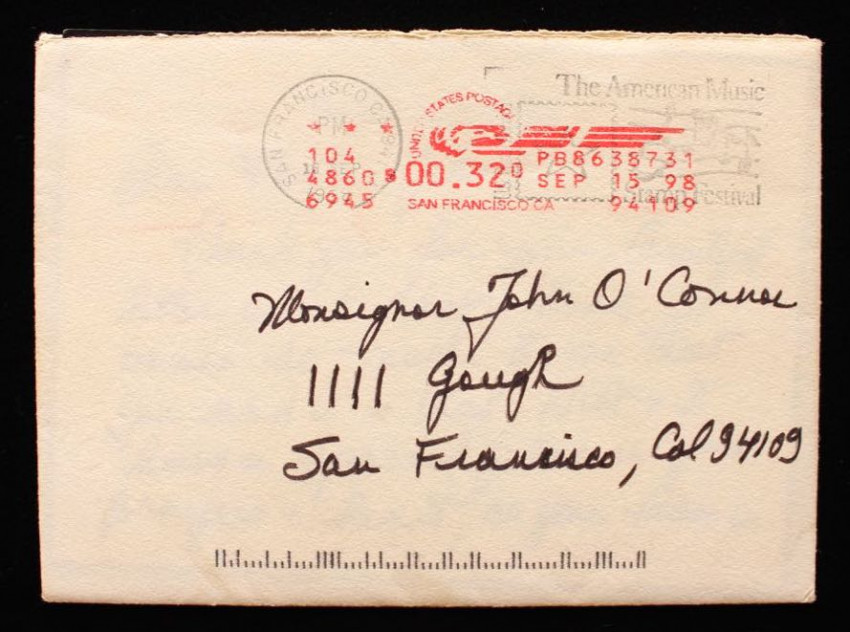 SAN FRANCISCO CA 941
PM
The American Music
Stamp Festival
UNITED STATES POSTAGE
104
4860
6945
00.320
PB8638731
SEP 15 98
SAN FRANCISCO CA 94109
Monsignor John O'Connor
1111 Gough
San Francisco, Cal. 94109